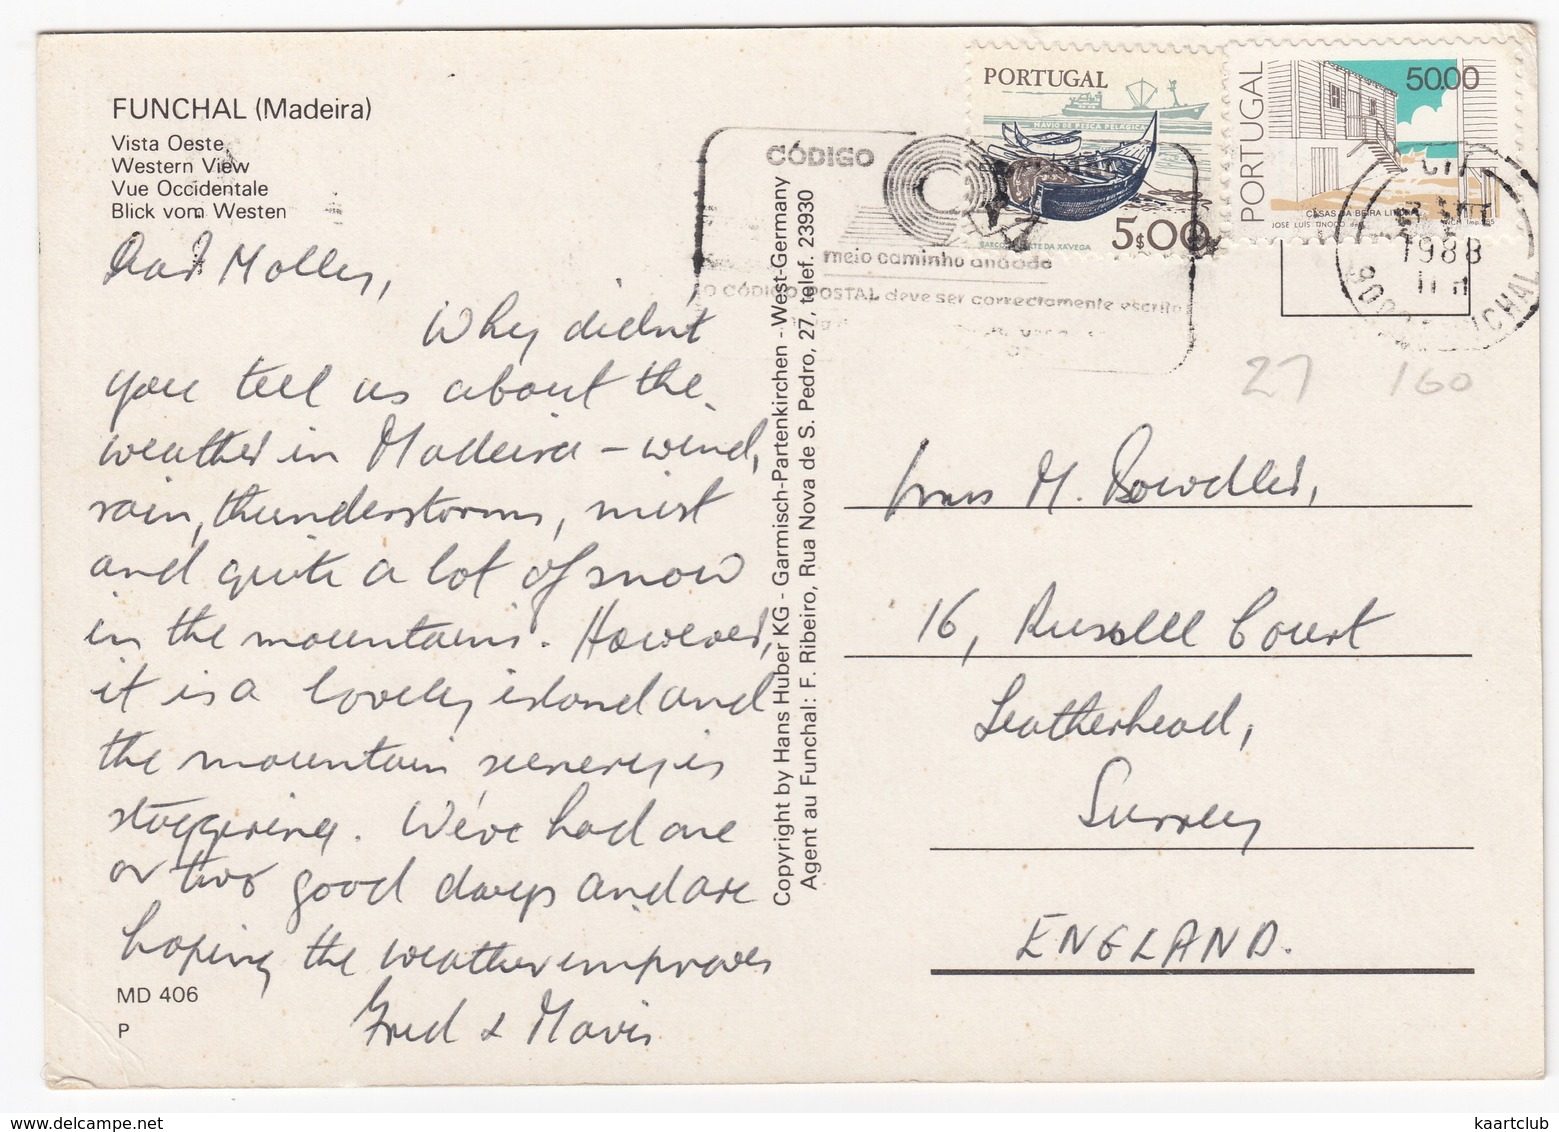 FUNCHAL (Madeira)
Vista Oeste
Western View
Vue Occidentale
Blick vom Westen
Dear Molley,
Why didn't
you tell us about the
weather in Madeira - wind,
rain, thunderstorms, mist
and quite a lot of snow
in the mountains. However,
it is a lovely island and
the mountain scenery is
staggering. We've had one
or two good days and are
hoping the weather improves
Fred & Mavis
MD 406
P
Copyright by Hans Huber KG - Garmisch-Partenkirchen - West-Germany
Agent au Funchal: F. Ribeiro, Rua Nova de S. Pedro, 27, telef. 23930
CÓDIGO
meio caminho andado
O CÓDIGO POSTAL deve ser correctamente escrito
PORTUGAL
NAVIO DE PESCA PELÁGICA
5$00
PORTUGAL
50.00
CASAS DA BEIRA
JOSÉ LUÍS TINOCO
1988
27 160
M. Bowdler,
16, Russell Court
Leatherhead,
Surrey
ENGLAND.
kaartclub